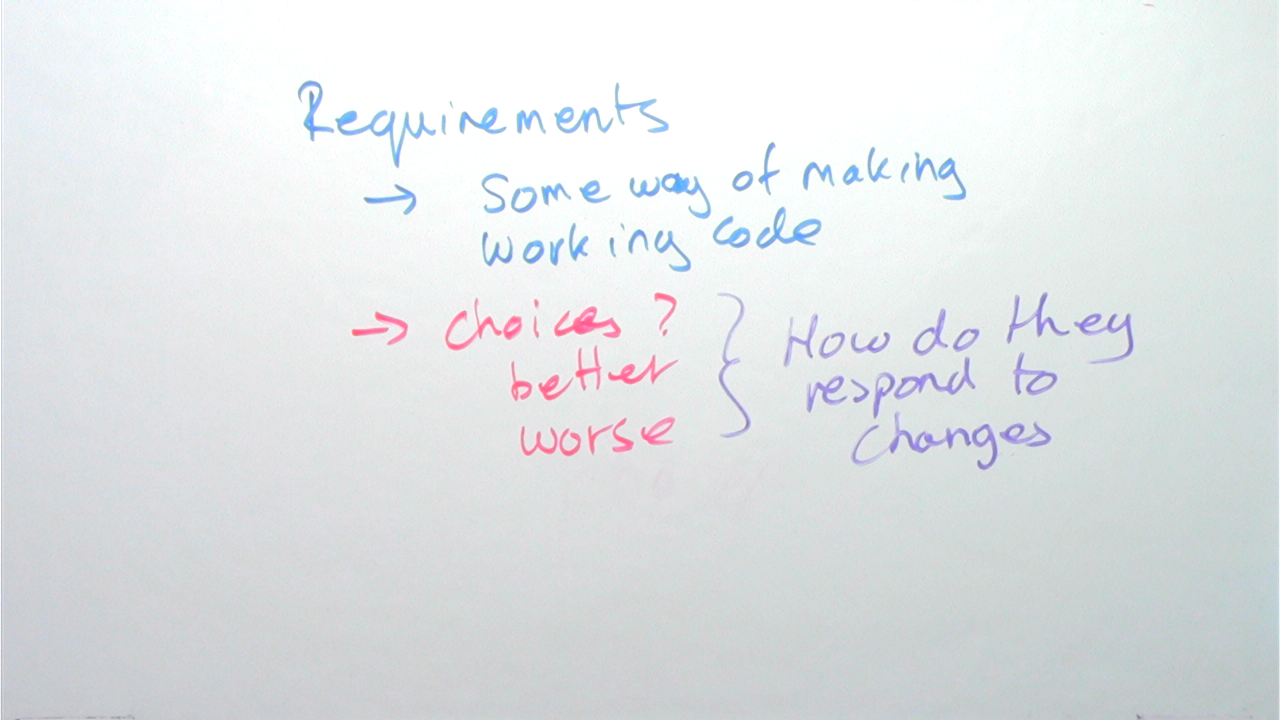 Requirements
→ Some way of making
working code
→ choices ?
better
worse
How do they
respond to
changes